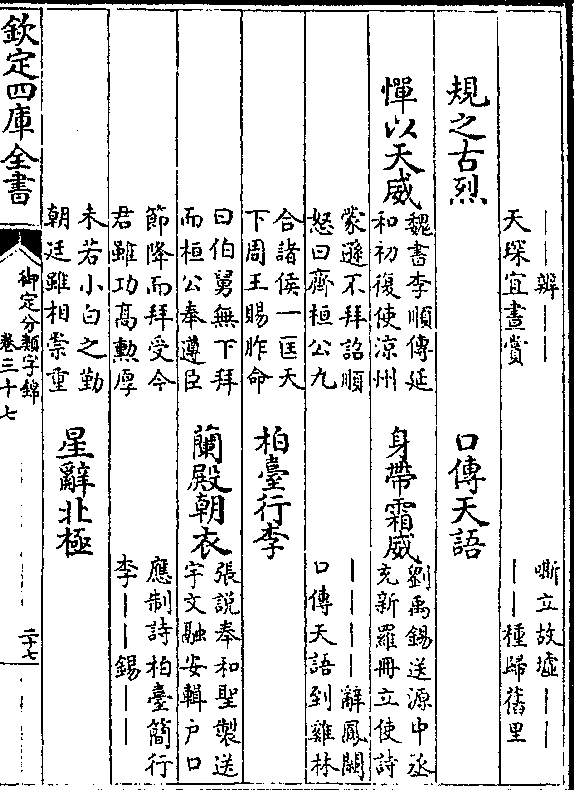 ——辨———
天琛宜晝賞
規之古烈
憚以天威
魏書李順傳延
和初復使涼州
蒙遜不拜詔順
怒曰齊桓公九
合諸侯一匡天
下周王賜胙命
曰伯舅無下拜
而桓公奉遵臣
節降而拜受今
君雖功高勲厚
未若小白之勤
朝廷雖相崇重
嘶立故墟——
——種歸舊里
口傳天語
身帶霜威
劉禹錫送源中丞
充新羅冊立使詩
————辭鳳闕
口傳天語到雞林
柏臺行李
蘭殿朝衣
張說奉和聖製送
宇文融安輯户口
應制詩柏臺簡行
李——錫——
星辭北極
欽定四庫全書
御定分類字錦
卷三十七
二十七